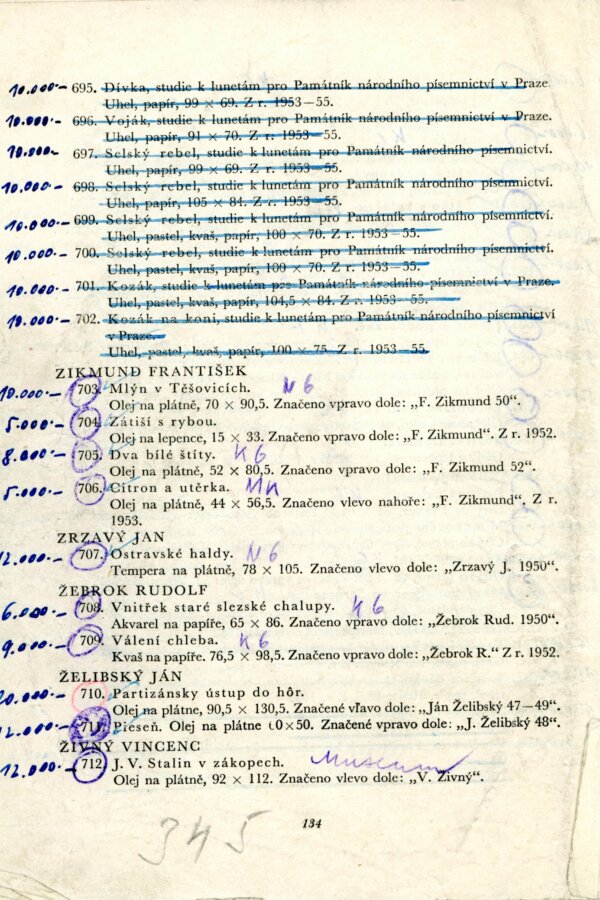 10.000.- 695. Dívka, studie k lunetám pro Památník národního písemnictví v Praze.
Uhel, papír, 99 × 69. Z r. 1953—55.
10.000.- 696. Voják, studie k lunetám pro Památník národního písemnictví v Praze.
Uhel, papír, 91 × 70. Z r. 1953—55.
10.000.- 697. Selský rebel, studie k lunetám pro Památník národního písemnictví.
Uhel, papír, 99 × 69. Z r. 1953—55.
10.000.- 698. Selský rebel, studie k lunetám pro Památník národního písemnictví.
Uhel, papír, 105 × 84. Z r. 1953—55.
10.000.- 699. Selský rebel, studie k lunetám pro Památník národního písemnictví.
Uhel, pastel, kvaš, papír, 100 × 70. Z r. 1953—55.
10.000.- 700. Selský rebel, studie k lunetám pro Památník národního písemnictví.
Uhel, pastel, kvaš, papír, 100 × 70. Z r. 1953—55.
10.000.- 701. Kozák, studie k lunetám pro Památník národního písemnictví v Praze.
Uhel, pastel, kvaš, papír, 104,5 × 84. Z r. 1953—55.
10.000.- 702. Kozák na koni, studie k lunetám pro Památník národního písemnictví
v Praze.
Uhel, pastel, kvaš, papír, 100 × 75. Z r. 1953—55.
ZIKMUND FRANTIŠEK
10.000.- 703. Mlýn v Těšovicích. N6
Olej na plátně, 70 × 90,5. Značeno vpravo dole: „F. Zikmund 50“.
5.000.- 704. Zátiší s rybou.
Olej na lepence, 15 × 33. Značeno vpravo dole: „F. Zikmund“. Z r. 1952.
8.000.- 705. Dva bílé štíty. K6
Olej na plátně, 52 × 80,5. Značeno vpravo dole: „F. Zikmund 52“.
5.000.- 706. Citron a utěrka.
Olej na plátně, 44 × 56,5. Značeno vlevo nahoře: „F. Zikmund“. Z r.
1953.
ZRZAVÝ JAN
12.000.- 707. Ostravské haldy. N6
Tempera na plátně, 78 × 105. Značeno vlevo dole: „Zrzavý J. 1950“.
ŽEBROK RUDOLF
6.000.- 708. Vnitřek staré slezské chalupy. K6
Akvarel na papíře, 65 × 86. Značeno vpravo dole: „Žebrok Rud. 1950“.
9.000.- 709. Válení chleba. K6
Kvaš na papíře. 76,5 × 98,5. Značeno vpravo dole: „Žebrok R.“ Z r. 1952.
ŽELIBSKÝ JÁN
20.000.- 710. Partizánsky ústup do hôr.
Olej na plátne, 90,5 × 130,5. Značené vľavo dole: „Ján Želibský 47—49“.
12.000.- 711. Pieseň. Olej na plátne 60×50. Značené vpravo dole: „J. Želibský 48“.
ŽIVNÝ VINCENC
12.000.- 712. J. V. Stalin v zákopech. Museum
Olej na plátně, 92 × 112. Značeno vlevo dole: „V. Živný“.
134
345